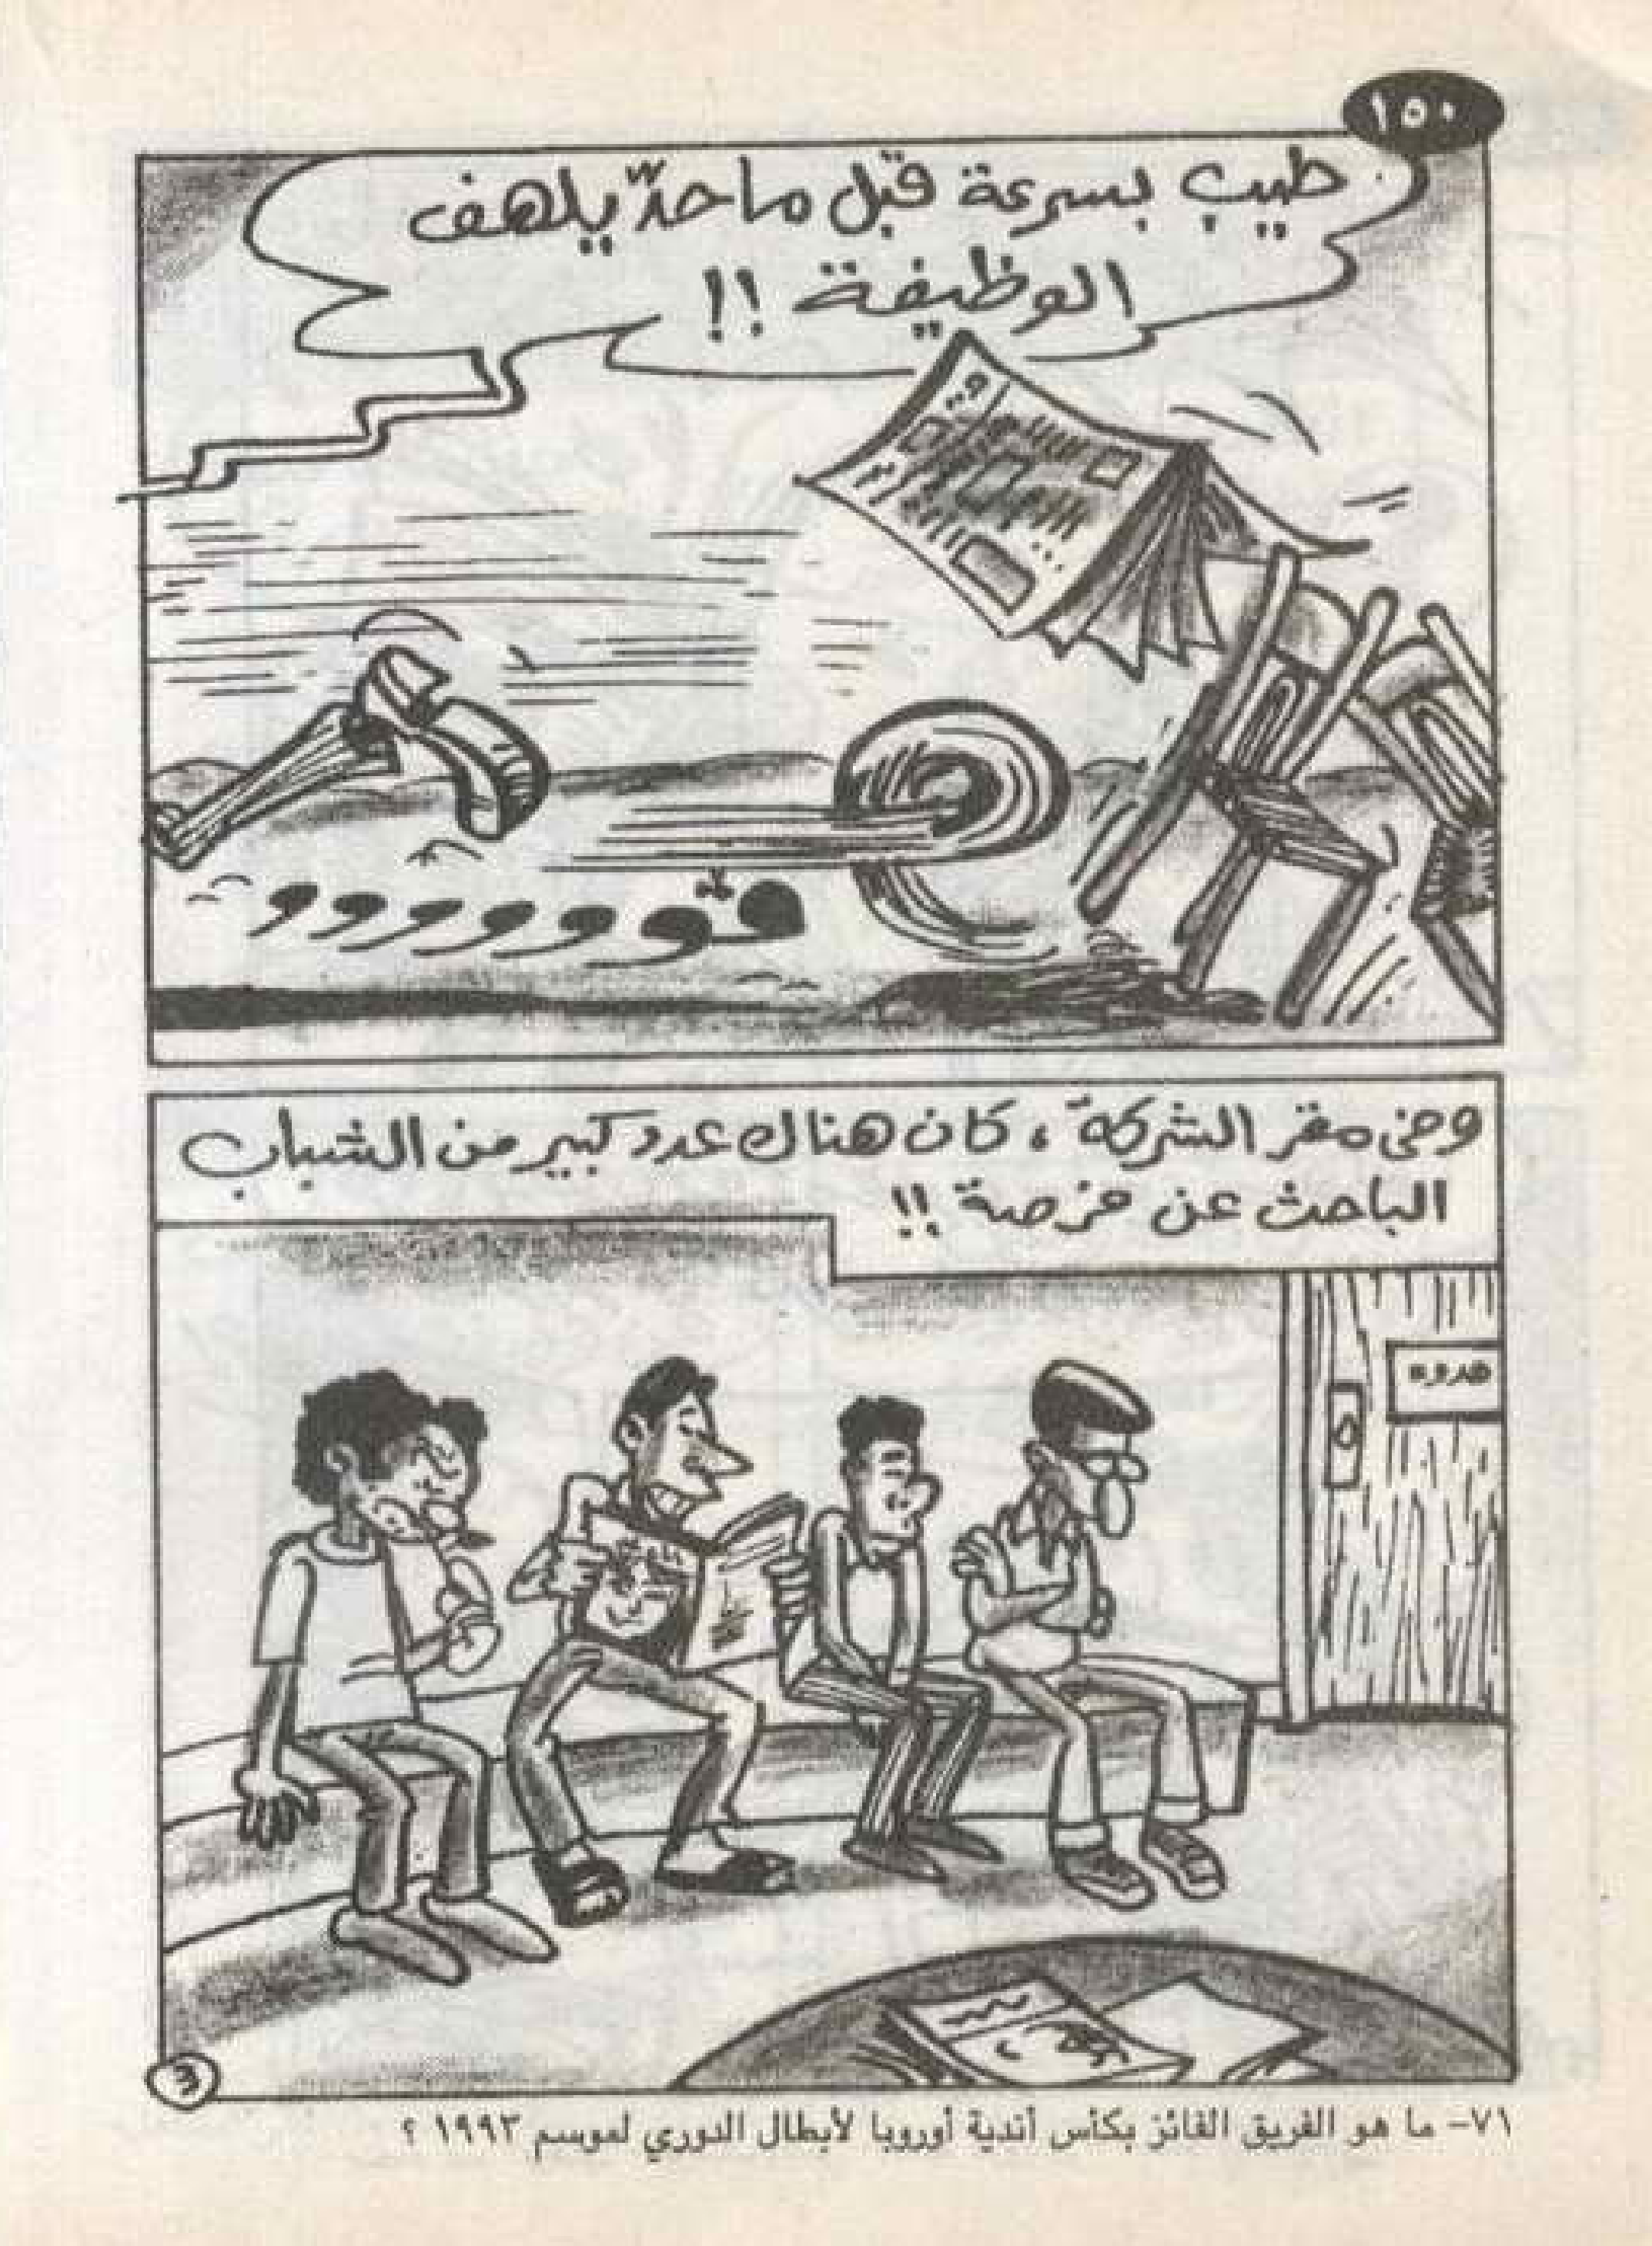 ١٥٠
طيب بسرعة قبل ما حدّ يلهف
الوظيفة !!
ڤوووووو
وفى مقر الشركة ، كان هناك عدد كبير من الشباب
الباحث عن فرصة !!
هدوء
٧١- ما هو الفريق الفائز بكأس أندية أوروبا لأبطال الدوري لموسم ١٩٩٣ ؟